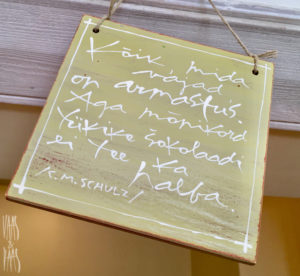 Kõik mida
vajad
on armastus.
Aga mõnikord
tükike šokolaadi
ei tee ka
halba.
/K.M. SCHULZ/
VAAS
&
PAAS